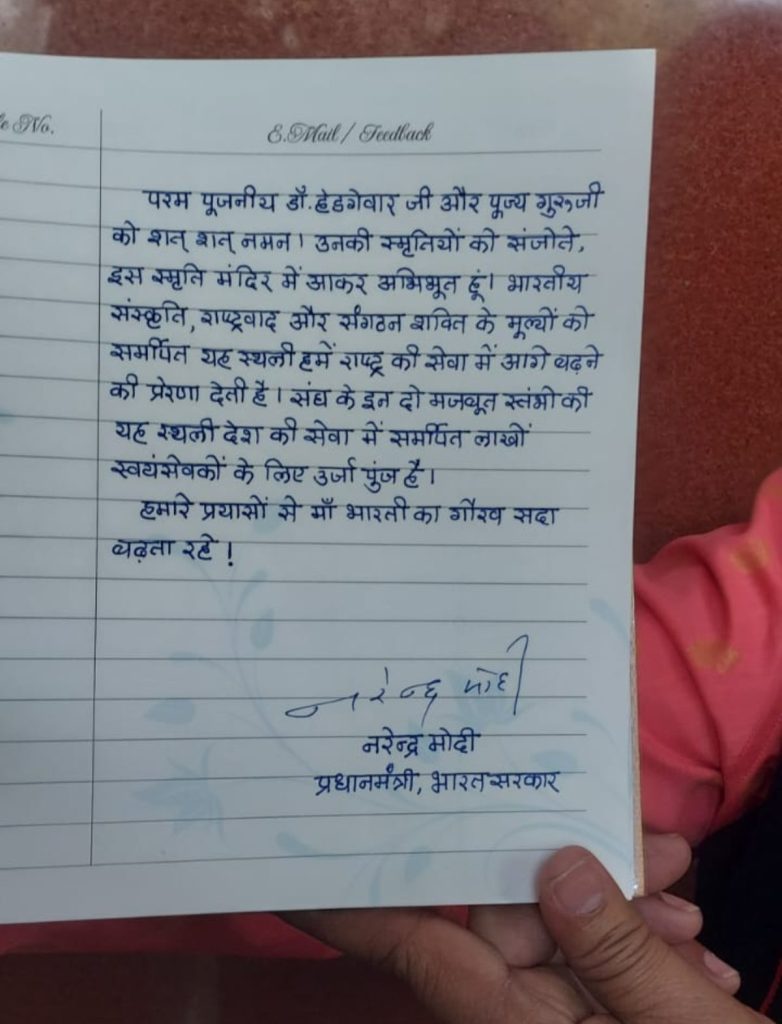 e No.
E.Mail / Feedback
परम पूजनीय डॉ. हेडगेवार जी और पूज्य गुरुजी
को शत् शत् नमन। उनकी स्मृतियों को संजोते,
इस स्मृति मंदिर में आकर अभिभूत हूं। भारतीय
संस्कृति, राष्ट्रवाद और संगठन शक्ति के मूल्यों को
समर्पित यह स्थली हमें राष्ट्र की सेवा में आगे बढ़ने
की प्रेरणा देती है। संघ के इन दो मजबूत स्तंभो की
यह स्थली देश की सेवा में समर्पित लाखों
स्वयंसेवकों के लिए उर्जा पुंज है।
हमारे प्रयासों से माँ भारती का गौरव सदा
बढ़ता रहे!
नरेन्द्र मोदी
नरेन्द्र मोदी
प्रधानमंत्री, भारत सरकार